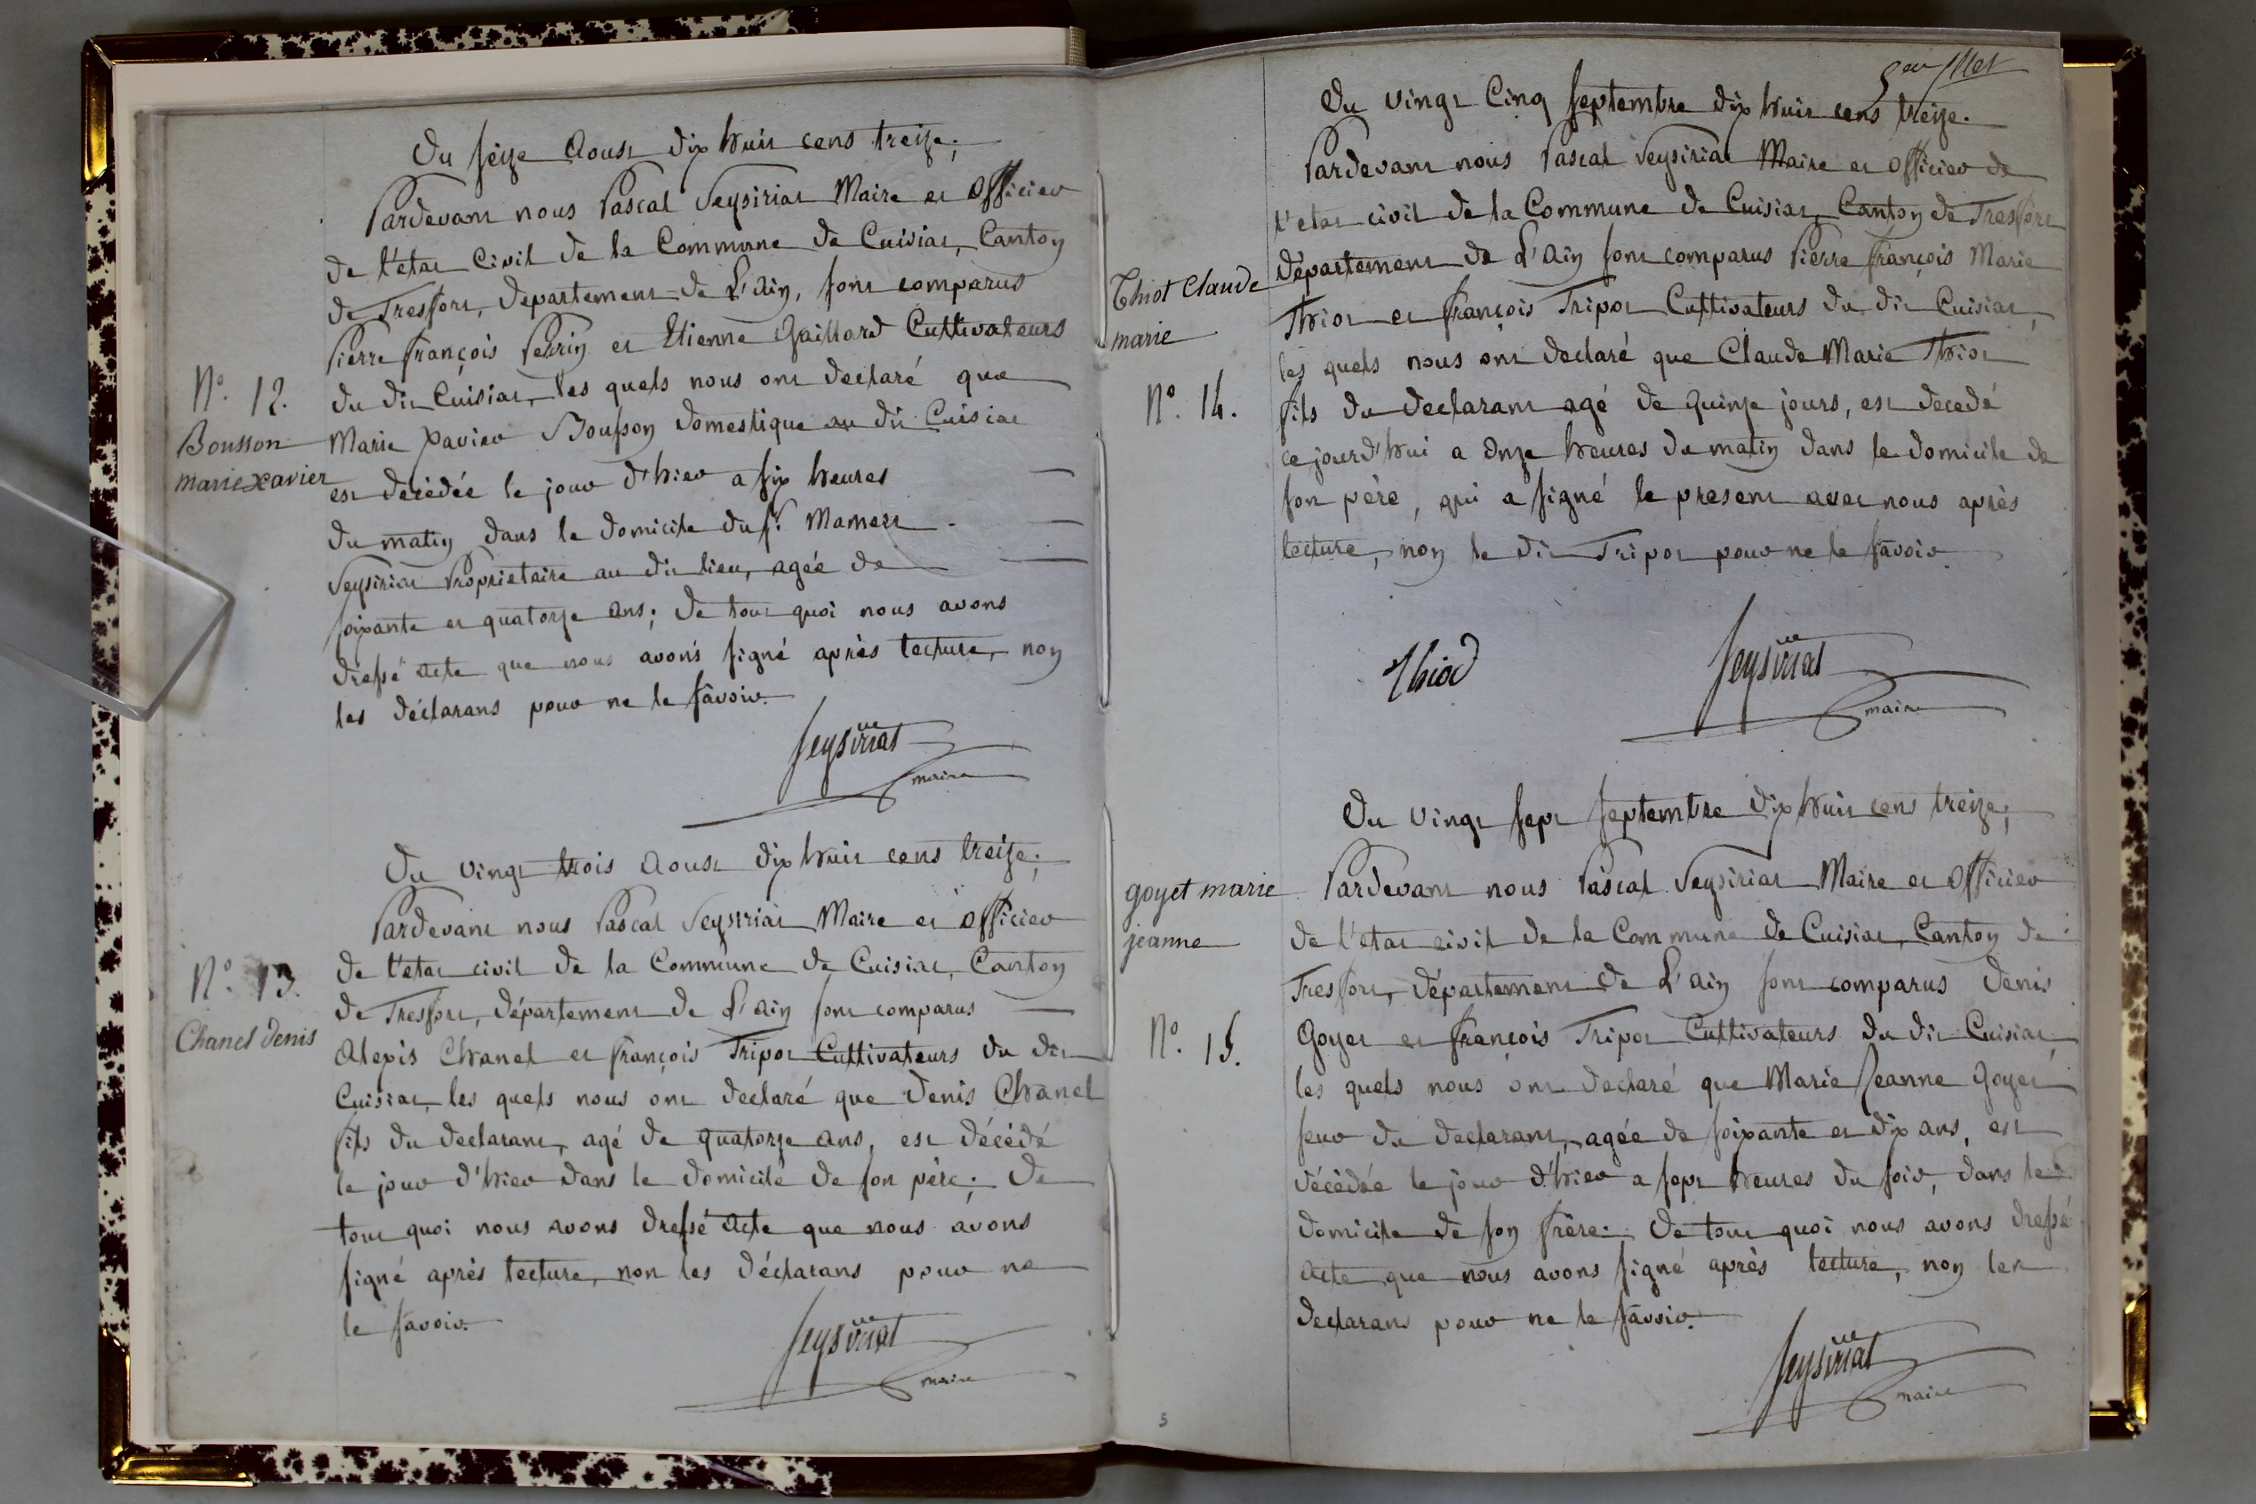 Du seize Aoust dix huit cens treize;
Pardevant nous Pascal Seysiriat Maire et officier
de l'etat Civil de la Commune de Cuisiat, Canton
de Tresfort, departement de L'ain, sont comparus
Pierre françois Perrin et Etienne Gaillard Cultivateurs
N.o 12.
du dit Cuisiat, les quels nous ont declaré que
Bousson
Marie Xavier Bousson domestique au dit Cuisiat
marie xavier
est decédée le jour d'hier a six heures
du matin dans le domicile du s.r Mamert
Seysiriat Propriétaire au dit lieu, agée de
soixante et quatorze ans; de tout quoi nous avons
dressé acte que nous avons signé après lecture, non
les déclarans pour ne le savoir.
Seysiriat
maire
Du vingt trois Aoust dix huit cens treize;
Pardevant nous Pascal Seysiriat Maire et officier
de l'etat civil de la Commune de Cuisiat, Canton
N.o 13.
de Tresfort, département de L'ain sont comparus
Chanel denis
Alexis Chanel et françois Tripot Cultivateurs du dit
Cuisiat, les quels nous ont declaré que Denis Chanel
fils du declarant, agé de quatorze ans, est décédé
le jour d'hier dans le domicile de son père; De
tout quoi nous avons dressé acte que nous avons
signé après lecture, non les déclarans pour ne
le savoir.
Seysiriat
maire
Du vingt Cinq septembre dix huit cens treize.
Pardevant nous Pascal Seysiriat Maire et officier de
l'etat civil de la Commune de Cuisiat, Canton de Tresfort
Thiot Claude
département de L'ain sont comparus Pierre françois Marie
marie
Thiot et françois Tripot Cultivateurs du dit Cuisiat,
les quels nous ont declaré que Claude Marie Thiot
N.o 14.
fils du declarant agé de quinze jours, est decedé
ce jourd'hui a onze heures du matin dans le domicile de
son père, qui a signé le present avec nous après
lecture, non le dit Tripot pour ne le savoir.
Thiot
Seysiriat
maire
Du vingt sept septembre dix huit cens treize;
goyet marie
Pardevant nous Pascal Seysiriat Maire et officier
jeanne
de l'etat civil de la Commune de Cuisiat, Canton de
Tresfort, département de L'ain sont comparus Denis
N.o 15.
Goyet et françois Tripot Cultivateurs du dit Cuisiat,
les quels nous ont declaré que Marie Jeanne Goyet
seur du declarant, agée de soixante et dix ans, est
décédée le jour d'hier a sept heures du soir, dans le
domicile de son frère. De tout quoi nous avons dressé
acte que nous avons signé après lecture, non les
declarans pour ne le savoir.
Seysiriat
maire
5